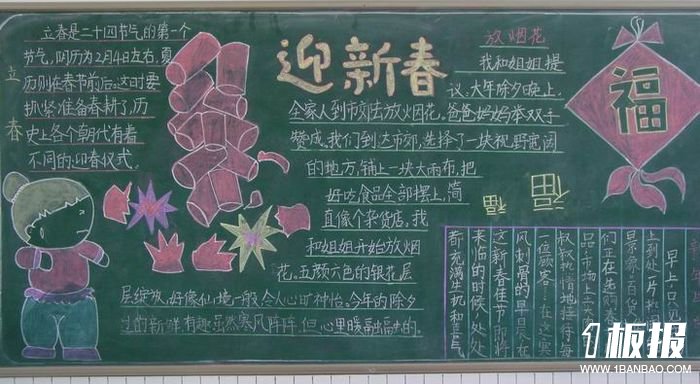 立春
立春是二十四节气的第一个
节气，阴历为2月4日左右，夏
历则在春节前后。这时要
抓紧准备春耕了，历
史上各个朝代有着
不同的迎春仪式。
迎新春
放烟花
我和姐姐提
议，大年除夕晚上，
全家人到市郊去放烟花。爸爸妈妈举双手
赞成。我们到达市郊，选择了一块视野宽阔
的地方，铺上一块大雨布，把
好吃食品全部摆上，简
直像个杂货店，我
和姐姐开始放烟
花。五颜六色的银花层
层绽放，好像仙境一般，令人心旷神怡。今年的除夕
过的新鲜有趣，虽然寒风阵阵，但心里暖融融的。
福
福
福
早上只见
上到处一片热
景象。百货
们正在选购春
品。市场上
叔叔热情地招待每
一位顾客……在这寒
风刺骨的早晨在
这新春佳节即将
来临的时候，处处
都充满生机和喜气
1板报
WWW.1BANBAO.COM